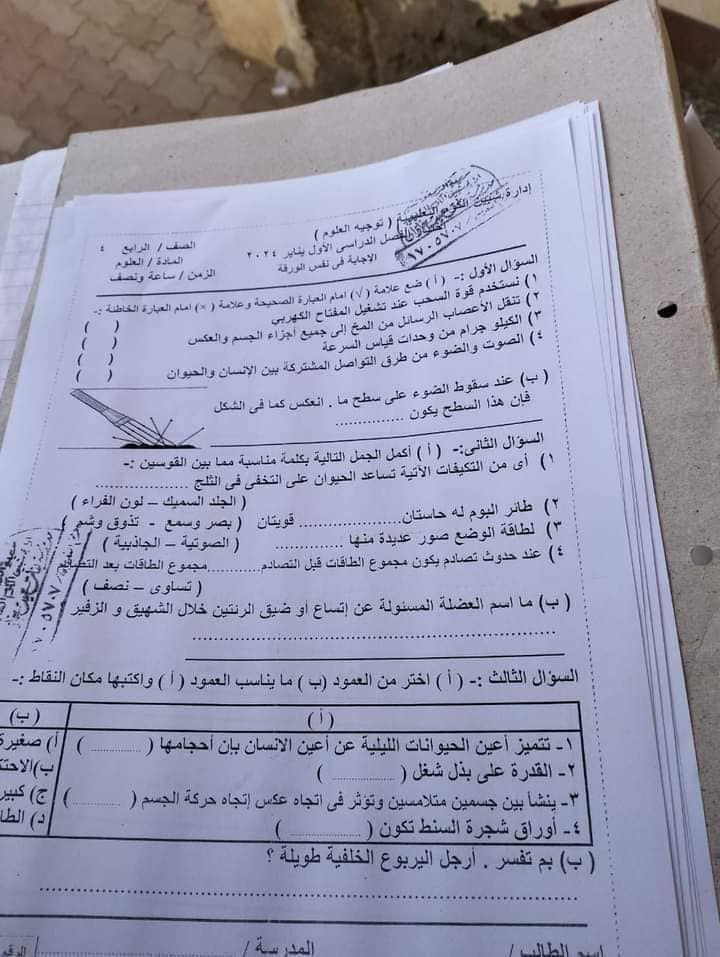 إدارة شبين القناطر التعليمية ( توجيه العلوم )
الفصل الدراسى الأول يناير ٢٠٢٤
الإجابة فى نفس الورقة
الصف / الرابع ٤
المادة / العلوم
الزمن / ساعة ونصف
١٧٠٥٧٠٧
السؤال الأول :- ( أ ) ضع علامة (√) امام العبارة الصحيحة وعلامة ( × ) امام العبارة الخاطئة :-
١) نستخدم قوة السحب عند تشغيل المفتاح الكهربي ( )
٢) تنقل الأعصاب الرسائل من المخ إلى جميع أجزاء الجسم والعكس ( )
٣) الكيلو جرام من وحدات قياس السرعة ( )
٤) الصوت والضوء من طرق التواصل المشتركة بين الإنسان والحيوان ( )
( ب) عند سقوط الضوء على سطح ما . انعكس كما فى الشكل
فإن هذا السطح يكون ...............
السؤال الثانى:- ( أ ) أكمل الجمل التالية بكلمة مناسبة مما بين القوسين :-
١) أى من التكيفات الآتية تساعد الحيوان على التخفى فى الثلج ....................
( الجلد السميك – لون الفراء )
٢) طائر البوم له حاستان.................... قويتان ( بصر وسمع - تذوق وشم )
٣) لطاقة الوضع صور عديدة منها .............. ( الصوتية – الجاذبية )
٤) عند حدوث تصادم يكون مجموع الطاقات قبل التصادم............مجموع الطاقات بعد التصادم
( تساوى – نصف )
( ب) ما اسم العضلة المسئولة عن إتساع أو ضيق الرئتين خلال الشهيق و الزفير
................................................................
١٧٠٥٧٠٧
السؤال الثالث :- ( أ ) اختر من العمود (ب ) ما يناسب العمود ( أ ) واكتبها مكان النقاط :-
( أ ) (ب)
١- تتميز أعين الحيوانات الليلية عن أعين الانسان بإن أحجامها ( ............... ) أ) صغيرة
٢- القدرة على بذل شغل ( ............... ) ب)
٣- ينشأ بين جسمين متلامسين وتؤثر فى اتجاه عكس إتجاه حركة الجسم ( ............... ) ج)
٤- أوراق شجرة السنط تكون ( ............... ) د)
( ب) بم تفسر . أرجل اليربوع الخلفية طويلة ؟
................................................................
اسم الطالب / المدرسة / ...............